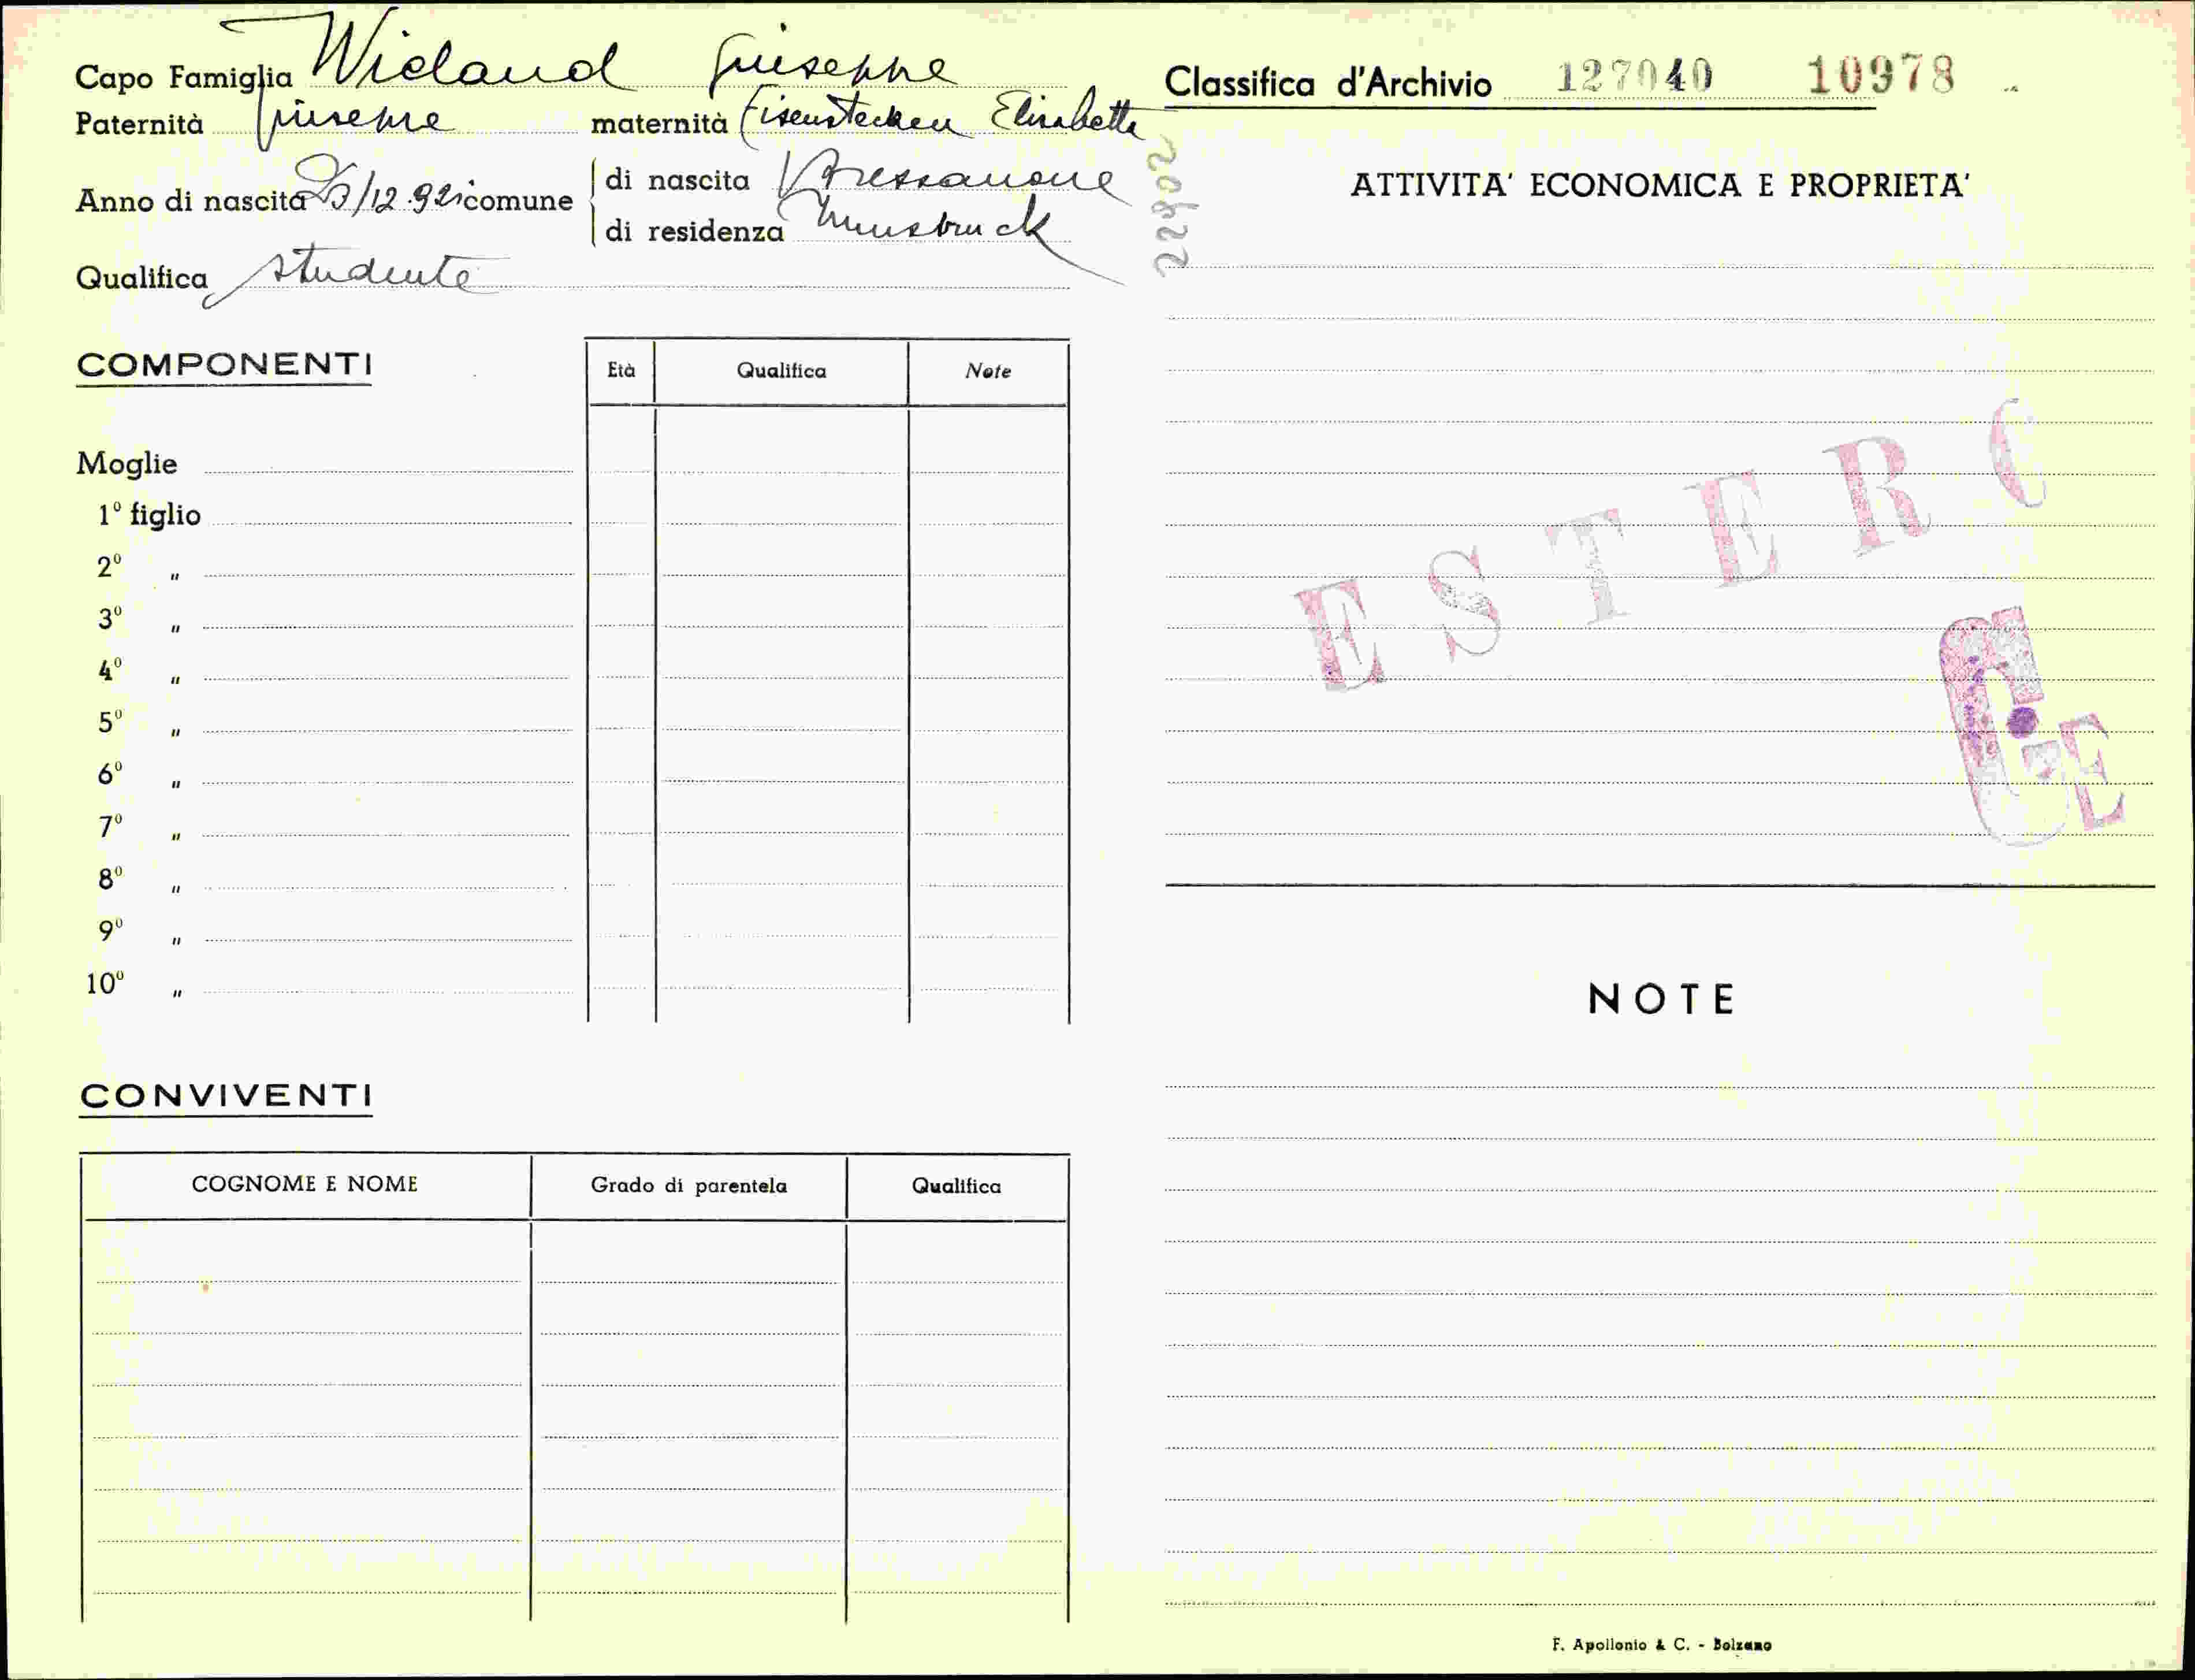 Capo Famiglia Wieland Giuseppe
Paternità Giuseppe maternità Eisenstecken Elisabetta
Anno di nascita 23/12.921 comune
di nascita Bressanone
di residenza Innsbruck
Qualifica studente
COMPONENTI
Età Qualifica Note
Moglie
1º figlio
2º "
3º "
4º "
5º "
6º "
7º "
8º "
9º "
10º "
CONVIVENTI
COGNOME E NOME Grado di parentela Qualifica
Classifica d'Archivio 127040 10978
22802
ATTIVITA' ECONOMICA E PROPRIETA'
ESTERO
G E
NOTE
F. Apollonio & C. - Bolzano